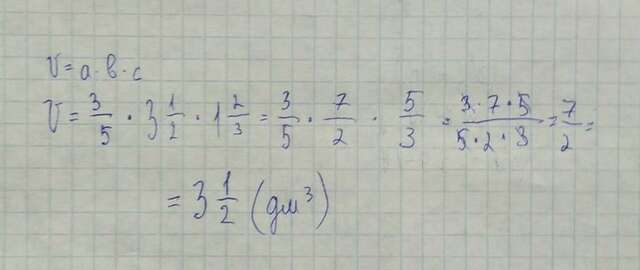 V = a · b · c
V = 3/5 · 3 1/2 · 1 2/3 = 3/5 · 7/2 · 5/3 = 3·7·5/5·2·3 = 7/2 =
= 3 1/2 (дм³)